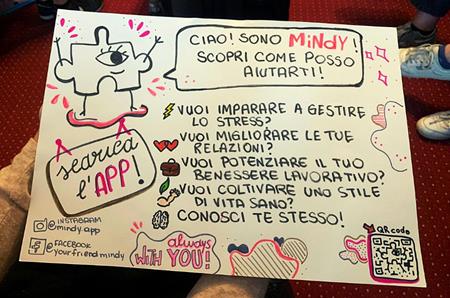 CIAO! SONO MiNDY!
SCOPRI COME POSSO
AIUTARTI!
VUOI IMPARARE A GESTIRE
LO STRESS?
VUOI MIGLIORARE LE TUE
RELAZIONI?
VUOI POTENZIARE IL TUO
BENESSERE LAVORATIVO?
VUOI COLTIVARE UNO STILE
DI VITA SANO?
CONOSCI TE STESSO!
scarica
l'APP!
INSTAGRAM
mindy.app
FACEBOOK
yourfriendmindy
always
WITH YOU!
QR code